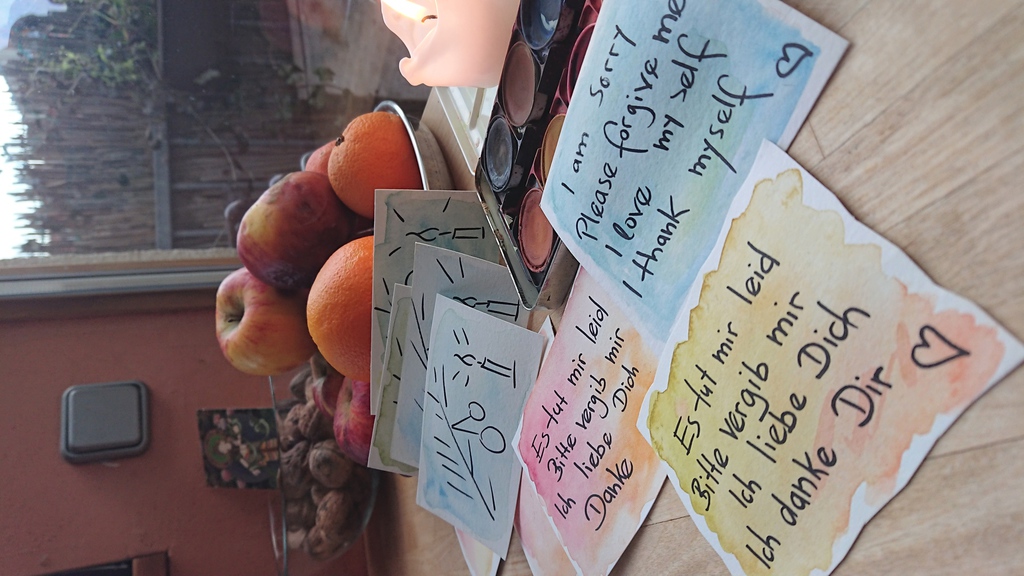 I am sorry
Please forgive me
I love my self
I thank myself
Es tut mir leid
Bitte vergib mir
Ich liebe Dich
Danke
Es tut mir leid
Bitte vergib mir
Ich liebe Dich
Ich danke Dir